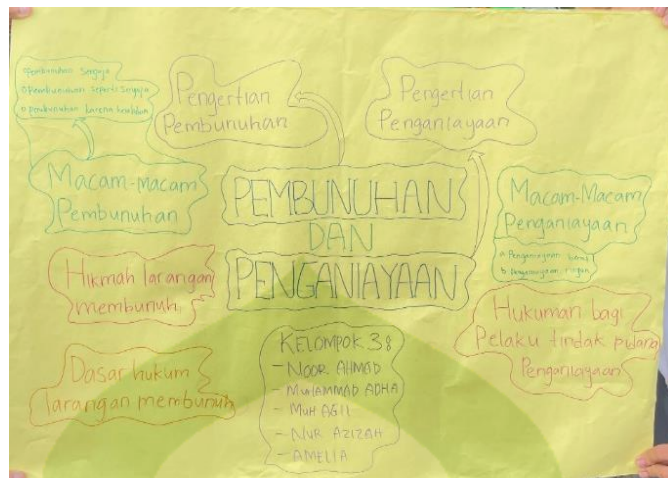 • Pembunuhan Sengaja
• Pembunuhan seperti Sengaja
• Pembunuhan karena
Pengertian
Pembunuhan
Pengertian
Penganiayaan
Macam-macam
Pembunuhan
PEMBUNUHAN
DAN
PENGANIAYAAN
Macam-Macam
Penganiayaan
a Penganiayaan berat
b Penganiayaan ringan
Hikmah larangan
membunuh
Hukuman bagi
Pelaku tindak pidana
Penganiayaan
Dasar hukum
larangan membunuh
KELOMPOK 3:
- NOOR AHMAD
- MUHAMMAD ADHA
- MUH AGIL
- NUR AZIZAH
- AMELIA